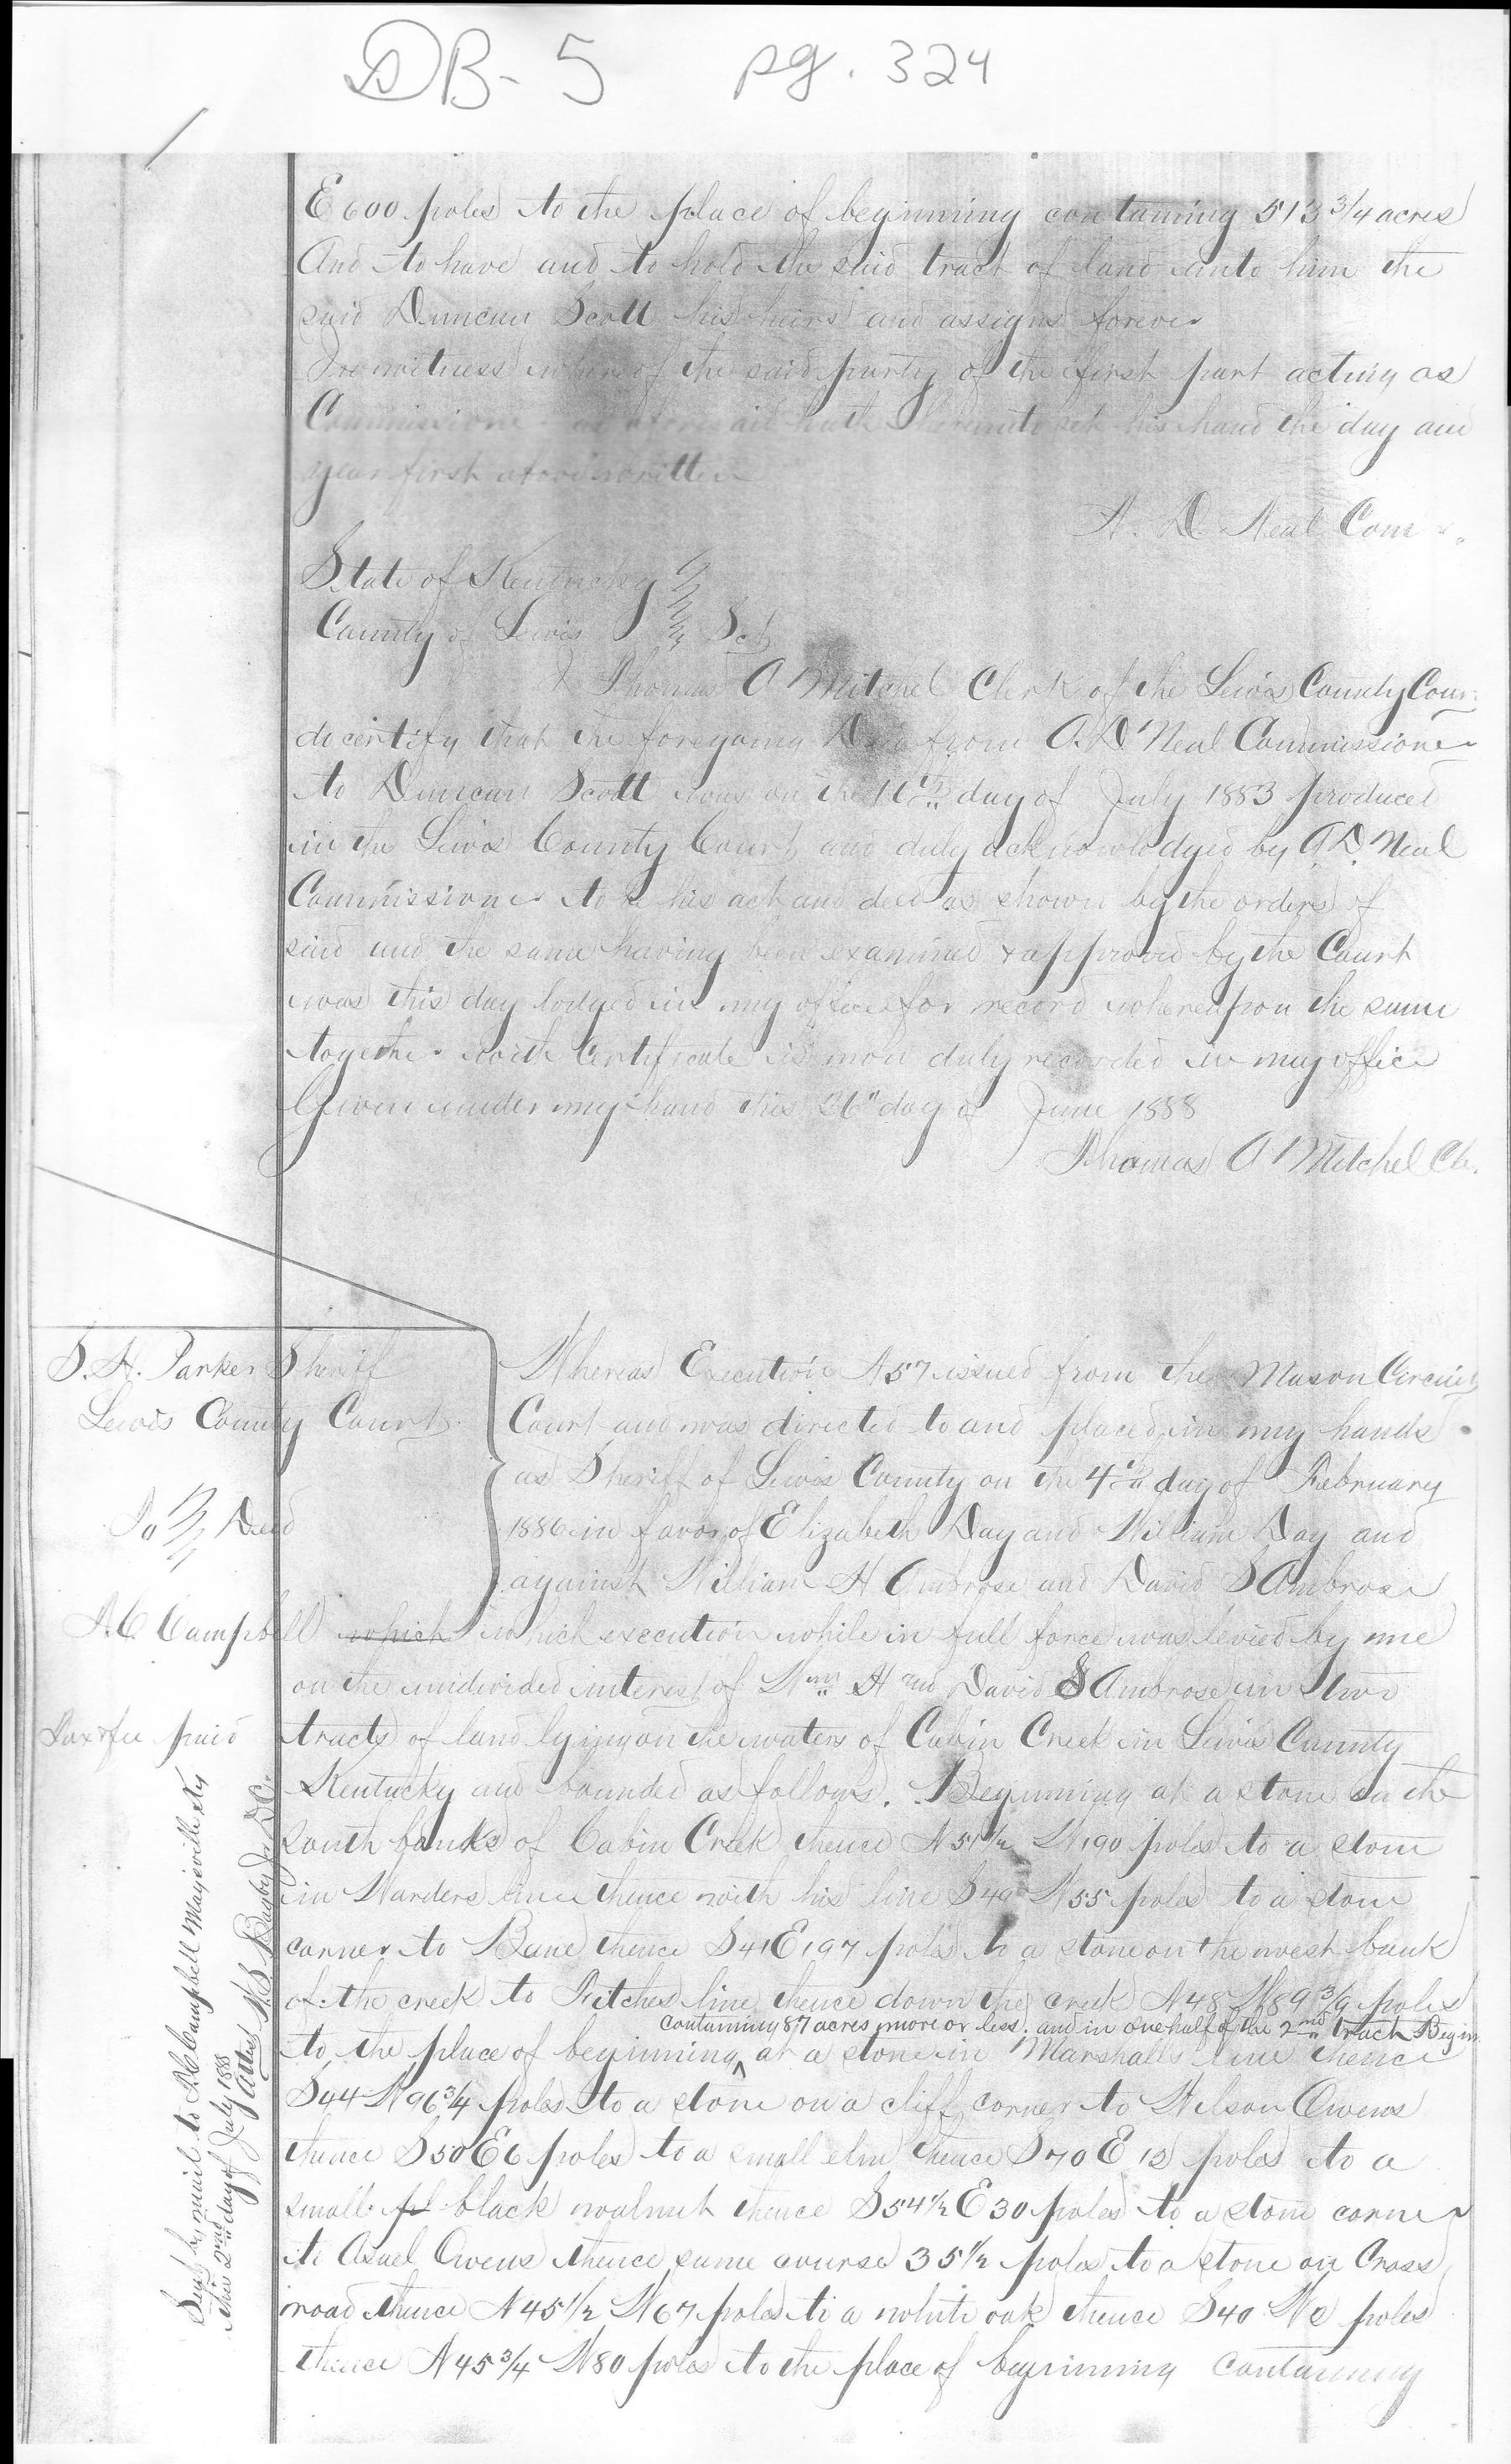 DB-5 pg. 324
E 600 poles to the place of beginning containing 513 3/4 acres
And to have and to hold the said tract of land unto him the
said Duncan Scott his heirs and assigns forever
In witness whereof the said party of the first part acting as
Commissioner as aforesaid hath hereunto set his hand the day and
year first above written
A. D. Neal Com
State of Kentucky
County of Lewis Sct
I Thomas A Mitchel Clerk of the Lewis County Cour
do certify that the foregoing Deed from A. D. Neal Commissioner
to Duncan Scott was on the 16th day of July 1883 produced
in the Lewis County Court and duly acknowledged by A. D. Neal
Commissioner to be his act and deed as shown by the orders of
said and the same having been examined & approved by the Court
was this day lodged in my office for record whereupon the same
together with Certificate is now duly recorded in my office
Given under my hand this 26" day of June 1888
Thomas A Mitchel Clk.
S. H. Parker Sheriff
Lewis County Court
To Deed
A. C. Campbell
Tax & fee paid
Sent by mail to A C Campbell Maysville Ky
this 2nd day of July 1888
Attest
Whereas Execution N 57 issued from the Mason Circuit
Court and was directed to and placed in my hands
as Sheriff of Lewis County on the 4th day of February
1886 in favor of Elizabeth Day and William Day and
against William H Ambrose and David S Ambrose
which which execution while in full force was levied by me
on the undivided interest of Wm H and David S Ambrose in two
tracts of land lying on the waters of Cabin Creek in Lewis County
Kentucky and bounded as follows. Beginning at a stone on the
south banks of Cabin Creek thence N 51 1/2 W 190 poles to a stone
in Warders line thence with his line S 49 W 55 poles to a stone
corner to Bane thence S 41 E 197 poles to a stone on the west bank
of the creek to Fitches line thence down the creek N 48 W 89 3/4 poles
containing 87 acres more or less. and in one half of the 2nd tract Begin
to the place of beginning ^ at a stone in Marshalls line thence
S 44 W 96 3/4 poles to a stone on a cliff corner to Wilson Owens
thence S 50 E 6 poles to a small elm thence S 70 E 12 poles to a
small black walnut thence S 54 1/2 E 30 poles to a stone corner
to Asael Owens thence same course 35 1/2 poles to a stone on Cross
road thence N 45 1/2 W 67 poles to a white oak thence S 40 W 2 poles
thence N 45 3/4 W 80 poles to the place of beginning containing